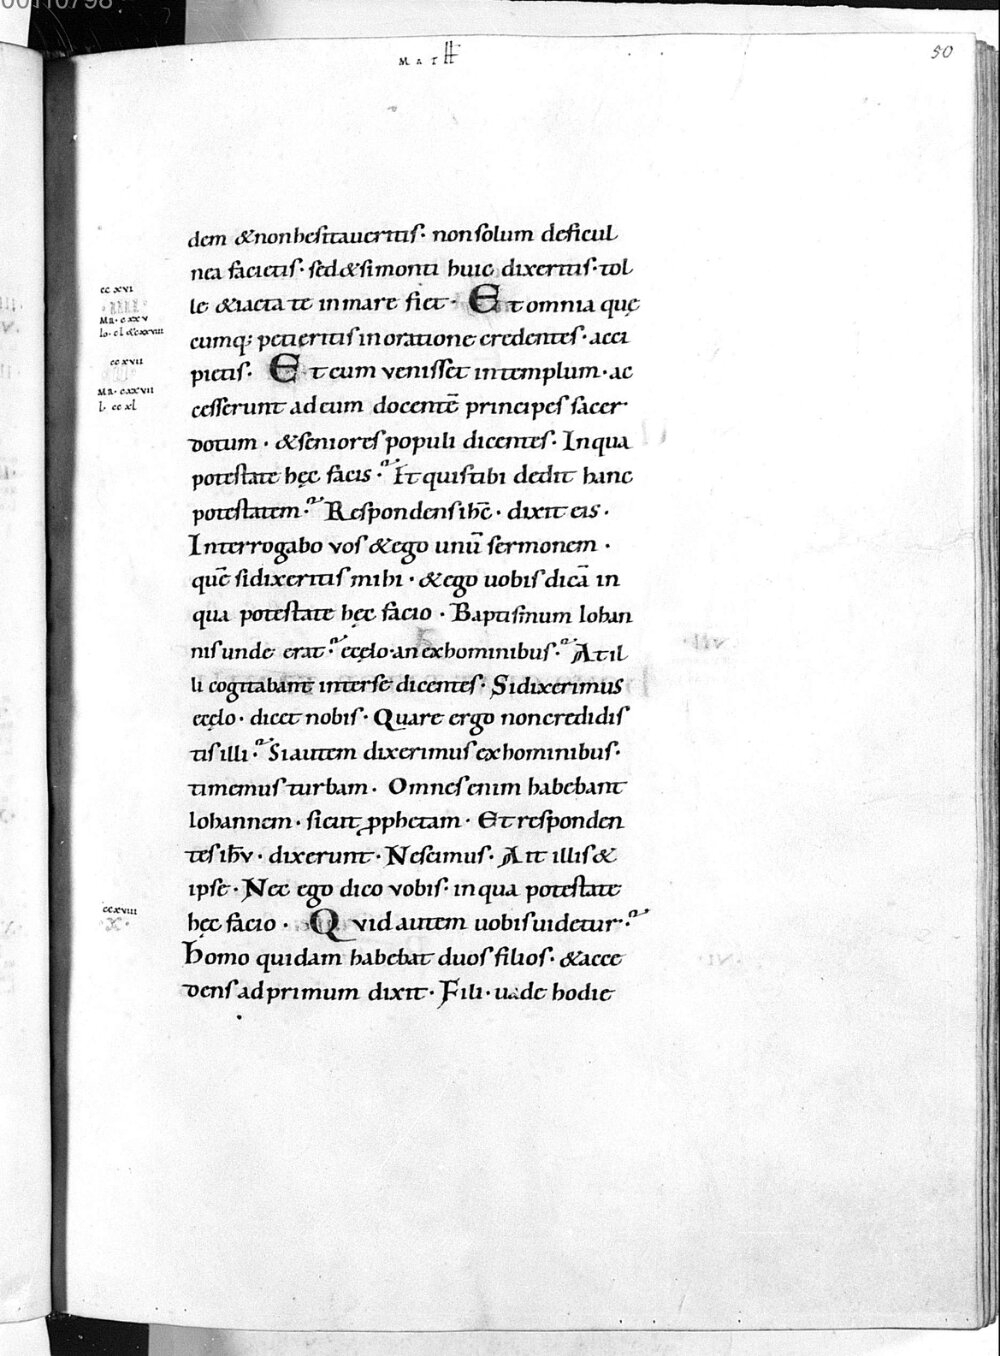 00110798
MATH
50
dem & non hesitaueritis· non solum de ficul
nea facietis· sed & si monti huic dixeritis· tol
le & iacta te in mare fiet· Et omnia quę
cumq; petieritis in oratione credentes· acci
pietis· Et cum venisset in templum· ac
cesserunt ad eum docentē principes sacer
dotum· & seniores populi dicentes· In qua
potestate hęc facis·? Et quis tibi dedit hanc
potestatem·? Respondens ihc̄· dixit eis·
Interrogabo vos & ego unū sermonem·
quē si dixeritis mihi· & ego uobis dicā in
qua potestate hęc facio· Baptismum Iohan
nis unde erat·? e cęlo· an ex hominibus·? At il
li cogitabant inter se dicentes· Si dixerimus
e cęlo· dicet nobis· Quare ergo non credidis
tis illi·? Si autem dixerimus ex hominibus·
timemus turbam· Omnes enim habebant
Iohannem· sicut ꝓphetam· Et responden
tes ihv̄· dixerunt· Nescimus· Ait illis &
ipse· Nec ego dico vobis· in qua potestate
hęc facio· Qvid autem uobis uidetur·?
homo quidam habebat duos filios· & acce
dens ad primum dixit· Fili· uade hodie
ccxvi
Ma· cxxv
Io· cl & cxxviii
ccxvii
Ma· cxxvii
l· ccxl
ccxviii
X·